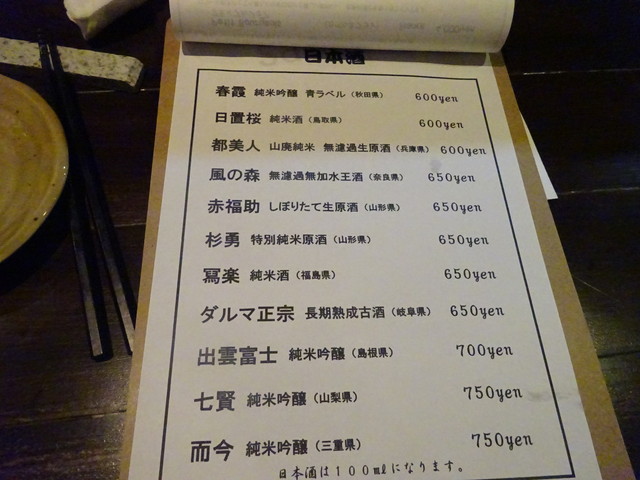 日本酒
春霞 純米吟醸 青ラベル（秋田県） 600yen
日置桜 純米酒（鳥取県） 600yen
都美人 山廃純米 無濾過生原酒（兵庫県） 600yen
風の森 無濾過無加水王酒（奈良県） 650yen
赤福助 しぼりたて生原酒（山形県） 650yen
杉勇 特別純米原酒（山形県） 650yen
冩楽 純米酒（福島県） 650yen
ダルマ正宗 長期熟成古酒（岐阜県） 650yen
出雲富士 純米吟醸（島根県） 700yen
七賢 純米吟醸（山梨県） 750yen
而今 純米吟醸（三重県） 750yen
日本酒は１００㎖になります。